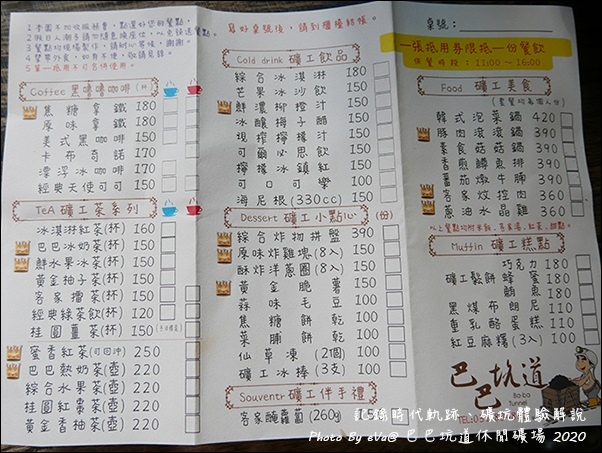 寫好桌號後，請到櫃檯結帳。
桌號：
一張抵用券限抵一份餐飲
供餐時段：11:00～16:00
Coffee 黑嚕嚕咖啡
焦糖拿鐵 180
原味拿鐵 150
美式黑咖啡 150
卡布奇諾 170
漂浮冰咖啡 170
經典天使可可 150
TeA 礦工茶系列
冰淇淋紅茶(杯) 160
巴巴冰奶茶(杯) 150
鮮水果冰茶(杯) 150
黃金柚子茶(杯) 150
客家擂茶(杯) 150
經典綠茶飲(杯) 120
桂圓薑茶(杯) 150
蜜香紅茶(可回沖) 250
巴巴熱奶茶(壺) 220
綜合水果茶(壺) 220
桂圓紅棗茶(壺) 220
黃金香柚茶(壺) 220
Cold drink 礦工飲品
綜合冰淇淋 180
芒果冰沙飲 150
鮮濃柳橙汁 150
冰釀梅子醋 150
現榨檸檬汁 150
可爾必思飲 150
檸檬冰鎮紅 150
可口可樂 100
海尼根(330cc) 150
Dessert 礦工小點心 (份)
綜合炸物拼盤 390
原味炸雞塊(8入) 150
酥炸洋蔥圈(8入) 150
黃金脆薯 150
蒜味毛豆 100
焦糖餅乾 100
菜脯餅乾 100
仙草凍(2個) 100
礦工冰棒(3支) 100
Souvenir 礦工伴手禮
客家醃蘿蔔(260g) 150
Food 礦工美食
(套餐均為個人份)
韓式泡菜鍋 420
豚肉滾滾鍋 390
素食菇菇鍋 390
香煎鱒魚排 390
番茄燉牛腩 390
客家炆控肉 360
蔥油水晶雞 360
Muffin 礦工糕點
巧克力 180
礦工鬆餅 蜂蜜 180
鮪魚 180
黑煤布朗尼 110
重乳酪蛋糕 110
紅豆麻糬(3入) 100
巴巴坑道
Ba-ba
Tunnel
記錄時代軌跡、礦坑體驗解說
Photo By eVa@ 巴巴坑道休閒礦場 2020